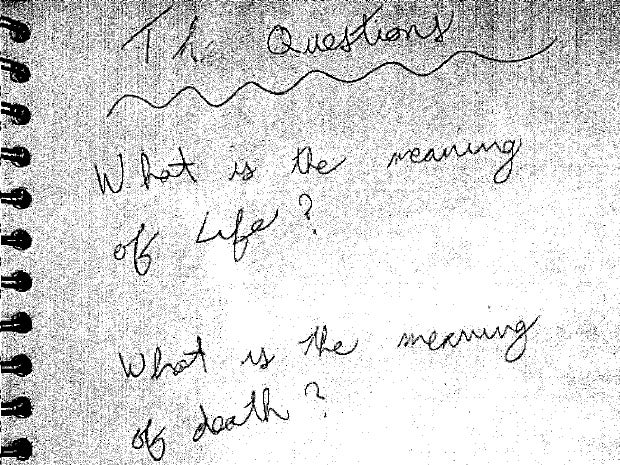 Th Questions
What is the meaning
of Life?
What is the meaning
of death?